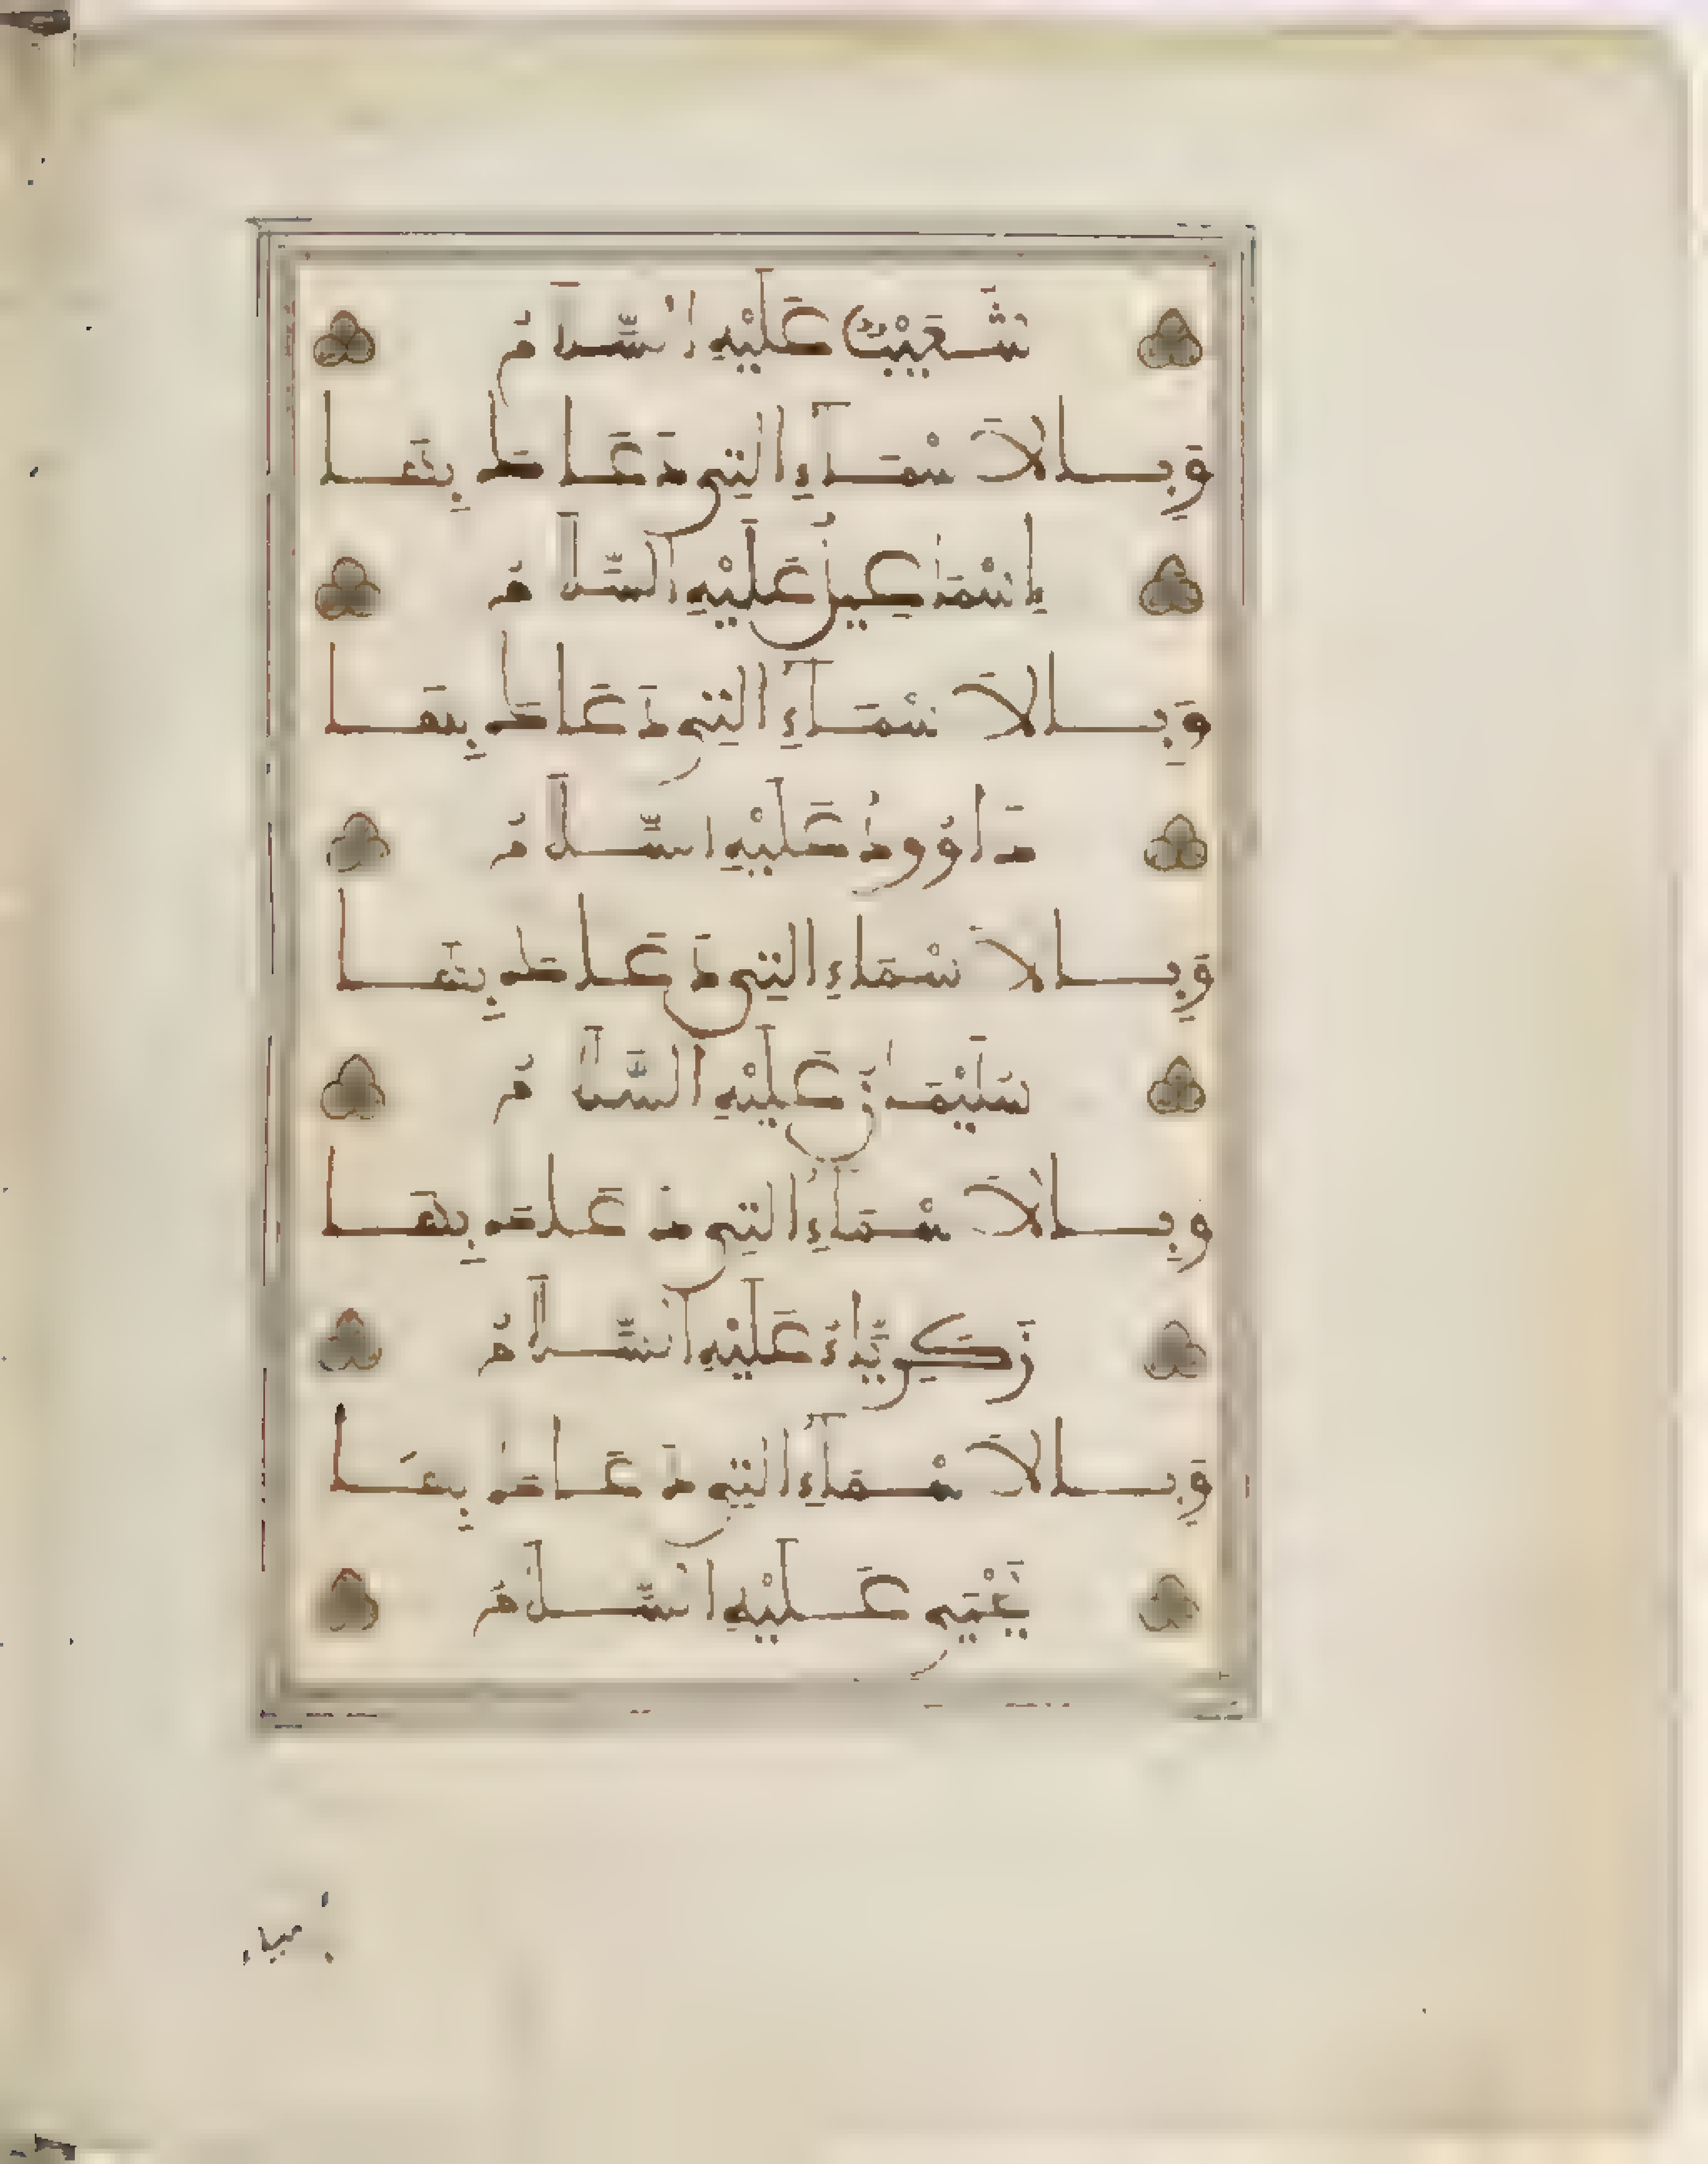 شُعَيْبٌ عَلَيْهِ السَّلَامُ
وَبِالْأَسْمَاءِ الَّتِي دَعَاكَ بِهَا
إِسْمَاعِيلُ عَلَيْهِ السَّلَامُ
وَبِالْأَسْمَاءِ الَّتِي دَعَاكَ بِهَا
دَاوُودُ عَلَيْهِ السَّلَامُ
وَبِالْأَسْمَاءِ الَّتِي دَعَاكَ بِهَا
سُلَيْمَانُ عَلَيْهِ السَّلَامُ
وَبِالْأَسْمَاءِ الَّتِي دَعَاكَ بِهَا
زَكَرِيَّاءُ عَلَيْهِ السَّلَامُ
وَبِالْأَسْمَاءِ الَّتِي دَعَاكَ بِهَا
يَحْيَى عَلَيْهِ السَّلَامُ